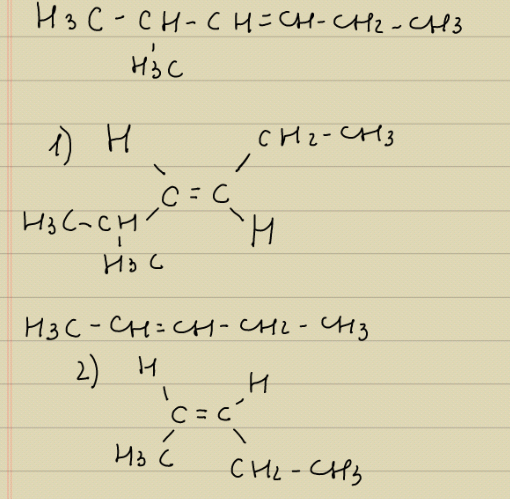 H3C - CH - CH = CH - CH2 - CH3
H3C
1) H CH2 - CH3
C = C
H3C - CH H
H3C
H3C - CH = CH - CH2 - CH3
2) H H
C = C
H3C CH2 - CH3